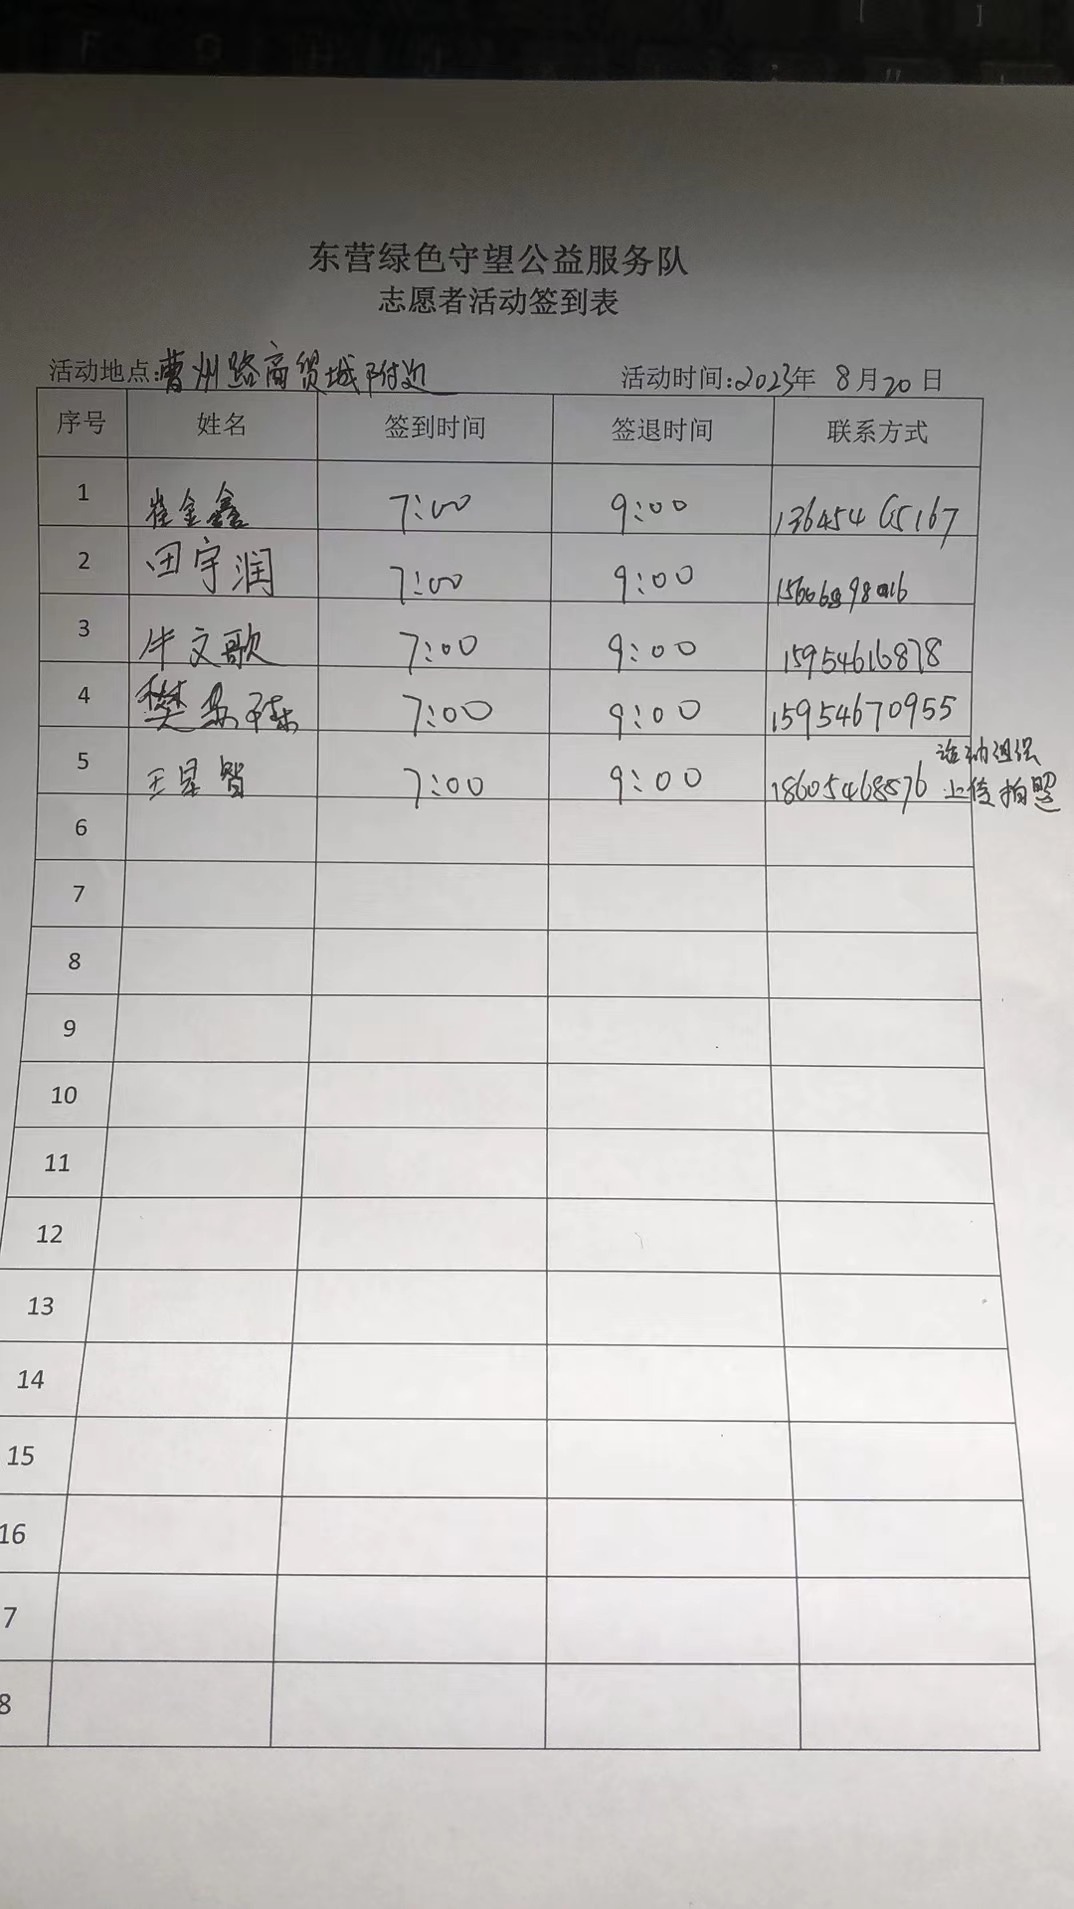 东营绿色守望公益服务队
志愿者活动签到表
活动地点:曹州路商贸城附近 活动时间:2023年 8月20日
序号 姓名 签到时间 签退时间 联系方式
1 崔金鑫 7:00 9:00 13645465167
2 田宇润 7:00 9:00
3 牛文歌 7:00 9:00 15954616878
4 樊 7:00 9:00 15954670955
活动组织
5 王星智 7:00 9:00 18605468576 上传拍照
6
7
8
9
10
11
12
13
14
15
16
7
8